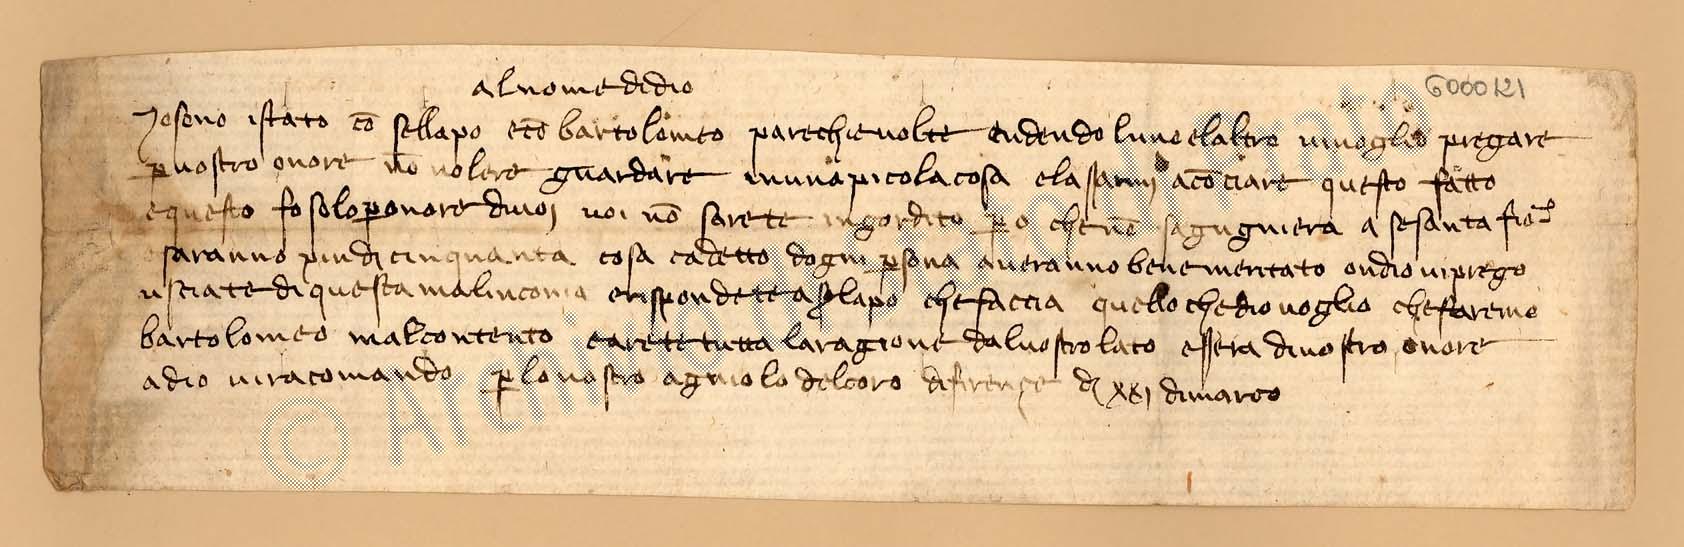 al nome di dio
6000121
Io sono istato cō sellapo ecō bartolomeo parechie volte eudendo luno elaltro vivoglio pregare
p vostro onore nō volere guardare inuna picola cosa elassarmj acōciare questo fatto
equesto fo solo p onore divoj voi nō sarete ingordito po che nō sagugniera a sesanta fior
osaranno piu di cinquanta cosa cadetto dogni psona averanno bene meritato ondio viprego
usciate di questa malinconia erispondete aslapo che faccia quello chedio voglio che faremo
bartolomeo malcontento earete tutta laragione dalvostro lato essera divostro onore
adio viracomando p lo vostro agniolo delcoro difirençe dj XXI dimarço
© Archivio di Stato di Prato